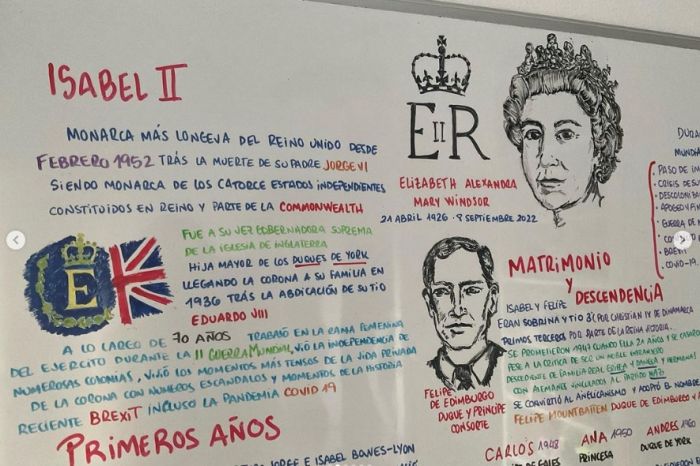 ISABEL II
MONARCA MÁS LONGEVA DEL REINO UNIDO DESDE
FEBRERO 1952 TRÁS LA MUERTE DE SU PADRE JORGE VI
SIENDO MONARCA DE LOS CATORCE ESTADOS INDEPENDIENTES
CONSTITUIDOS EN REINO Y PARTE DE LA COMMONWEALTH
EIIR
ELIZABETH ALEXANDRA
MARY WINDSOR
21 ABRIL 1926 - 8 SEPTIEMBRE 2022
E
FUE A SU VEZ GOBERNADORA SUPREMA
DE LA IGLESIA DE INGLATERRA
HIJA MAYOR DE LOS DUQUES DE YORK
LLEGANDO LA CORONA A SU FAMILIA EN
1936 TRÁS LA ABDICACIÓN DE SU TIO
EDUARDO VIII
A LO LARGO DE 70 AÑOS TRABAJÓ EN LA RAMA FEMENINA
DEL EJERCITO DURANTE LA II GUERRA MUNDIAL, VIÓ LA INDEPENDENCIA DE
NUMEROSAS COLONIAS, VIVIÓ LOS MOMENTOS MÁS TENSOS DE LA VIDA PRIVADA
DE LA CORONA CON NUMEROS ESCANDALOS Y MOMENTOS DE LA HISTORIA
RECIENTE BREXIT INCLUSO LA PANDEMIA COVID 19
PRIMEROS AÑOS
JORGE E ISABEL BOWES-LYON
FELIPE
DE EDIMBURGO
DUQUE Y PRÍNCIPE
CONSORTE
MATRIMONIO
Y
DESCENDENCIA
ISABEL Y FELIPE
ERAN SOBRINA Y TIO 3º, POR CHRISTIAN IX DE DINAMARCA
PRIMOS TERCEROS POR PARTE DE LA REINA VICTORIA.
SE PROMETIERON 1947 CUANDO ELLA 21 AÑOS Y SE CASARON
PESE A LA CRÍTICA DE SER UN NOBLE EXTRANJERO
DESCENDIENTE DE FAMILIA REAL GRIEGA Y DANESA Y HERMANAS
CON ALEMANES VINCULADOS AL PARTIDO NAZI
SE CONVIRTIÓ AL ANGLICANISMO Y ADOPTÓ EL NOMBRE
FELIPE MOUNTBATTEN DUQUE DE EDIMBURGO
CARLOS 1948
ANA 1950
PRINCESA
ANDRES 1960
DUQUE DE YORK
PASO DE
CRISIS DE
GUERRA DE
BREXIT
COVID-19